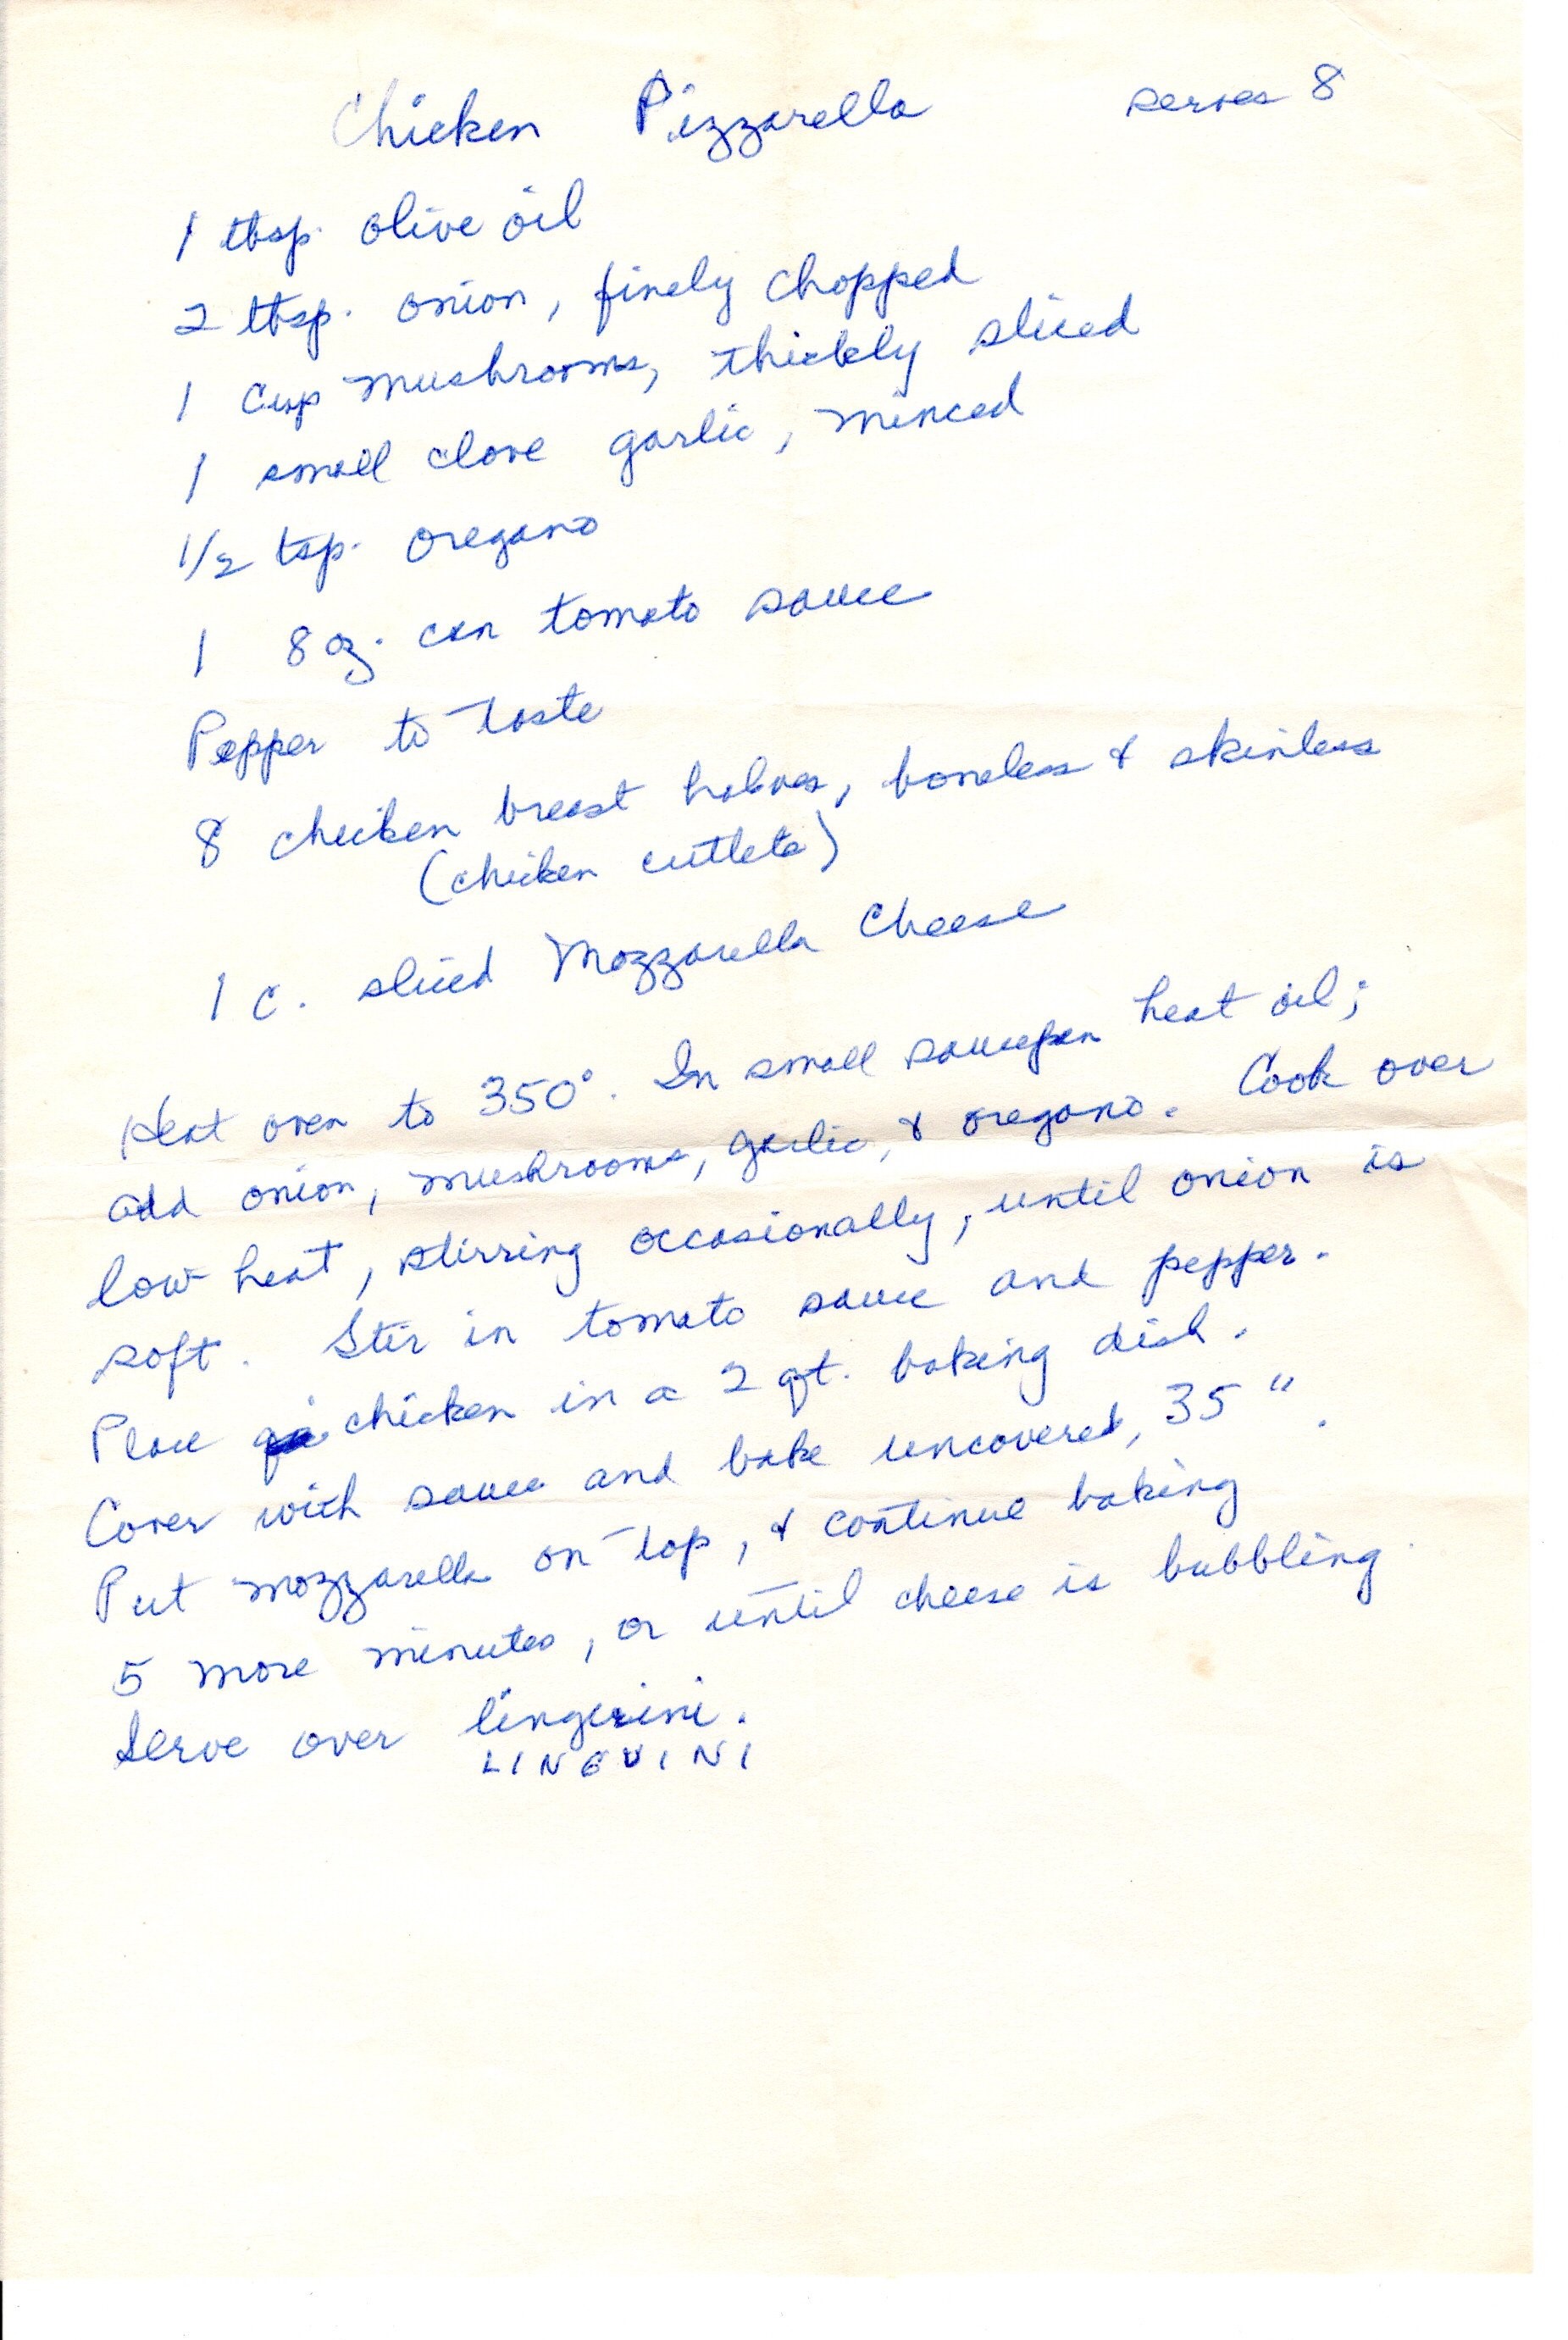 Chicken Pizzarella serves 8
1 tbsp. olive oil
2 tbsp. onion, finely chopped
1 cup mushrooms, thickly sliced
1 small clove garlic, minced
1/2 tsp. oregano
1 8 oz. can tomato sauce
Pepper to taste
8 chicken breast halves, boneless & skinless
(chicken cutlets)
1 c. sliced Mozzarella Cheese
Heat oven to 350°. In small saucepan heat oil;
add onion, mushrooms, garlic, & oregano. Cook over
low heat, stirring occasionally, until onion is
soft. Stir in tomato sauce and pepper.
Place chicken in a 2 qt. baking dish.
Cover with sauce and bake uncovered, 35".
Put mozzarella on top, & continue baking
5 more minutes, or until cheese is bubbling.
Serve over linguini.
LINGUINI